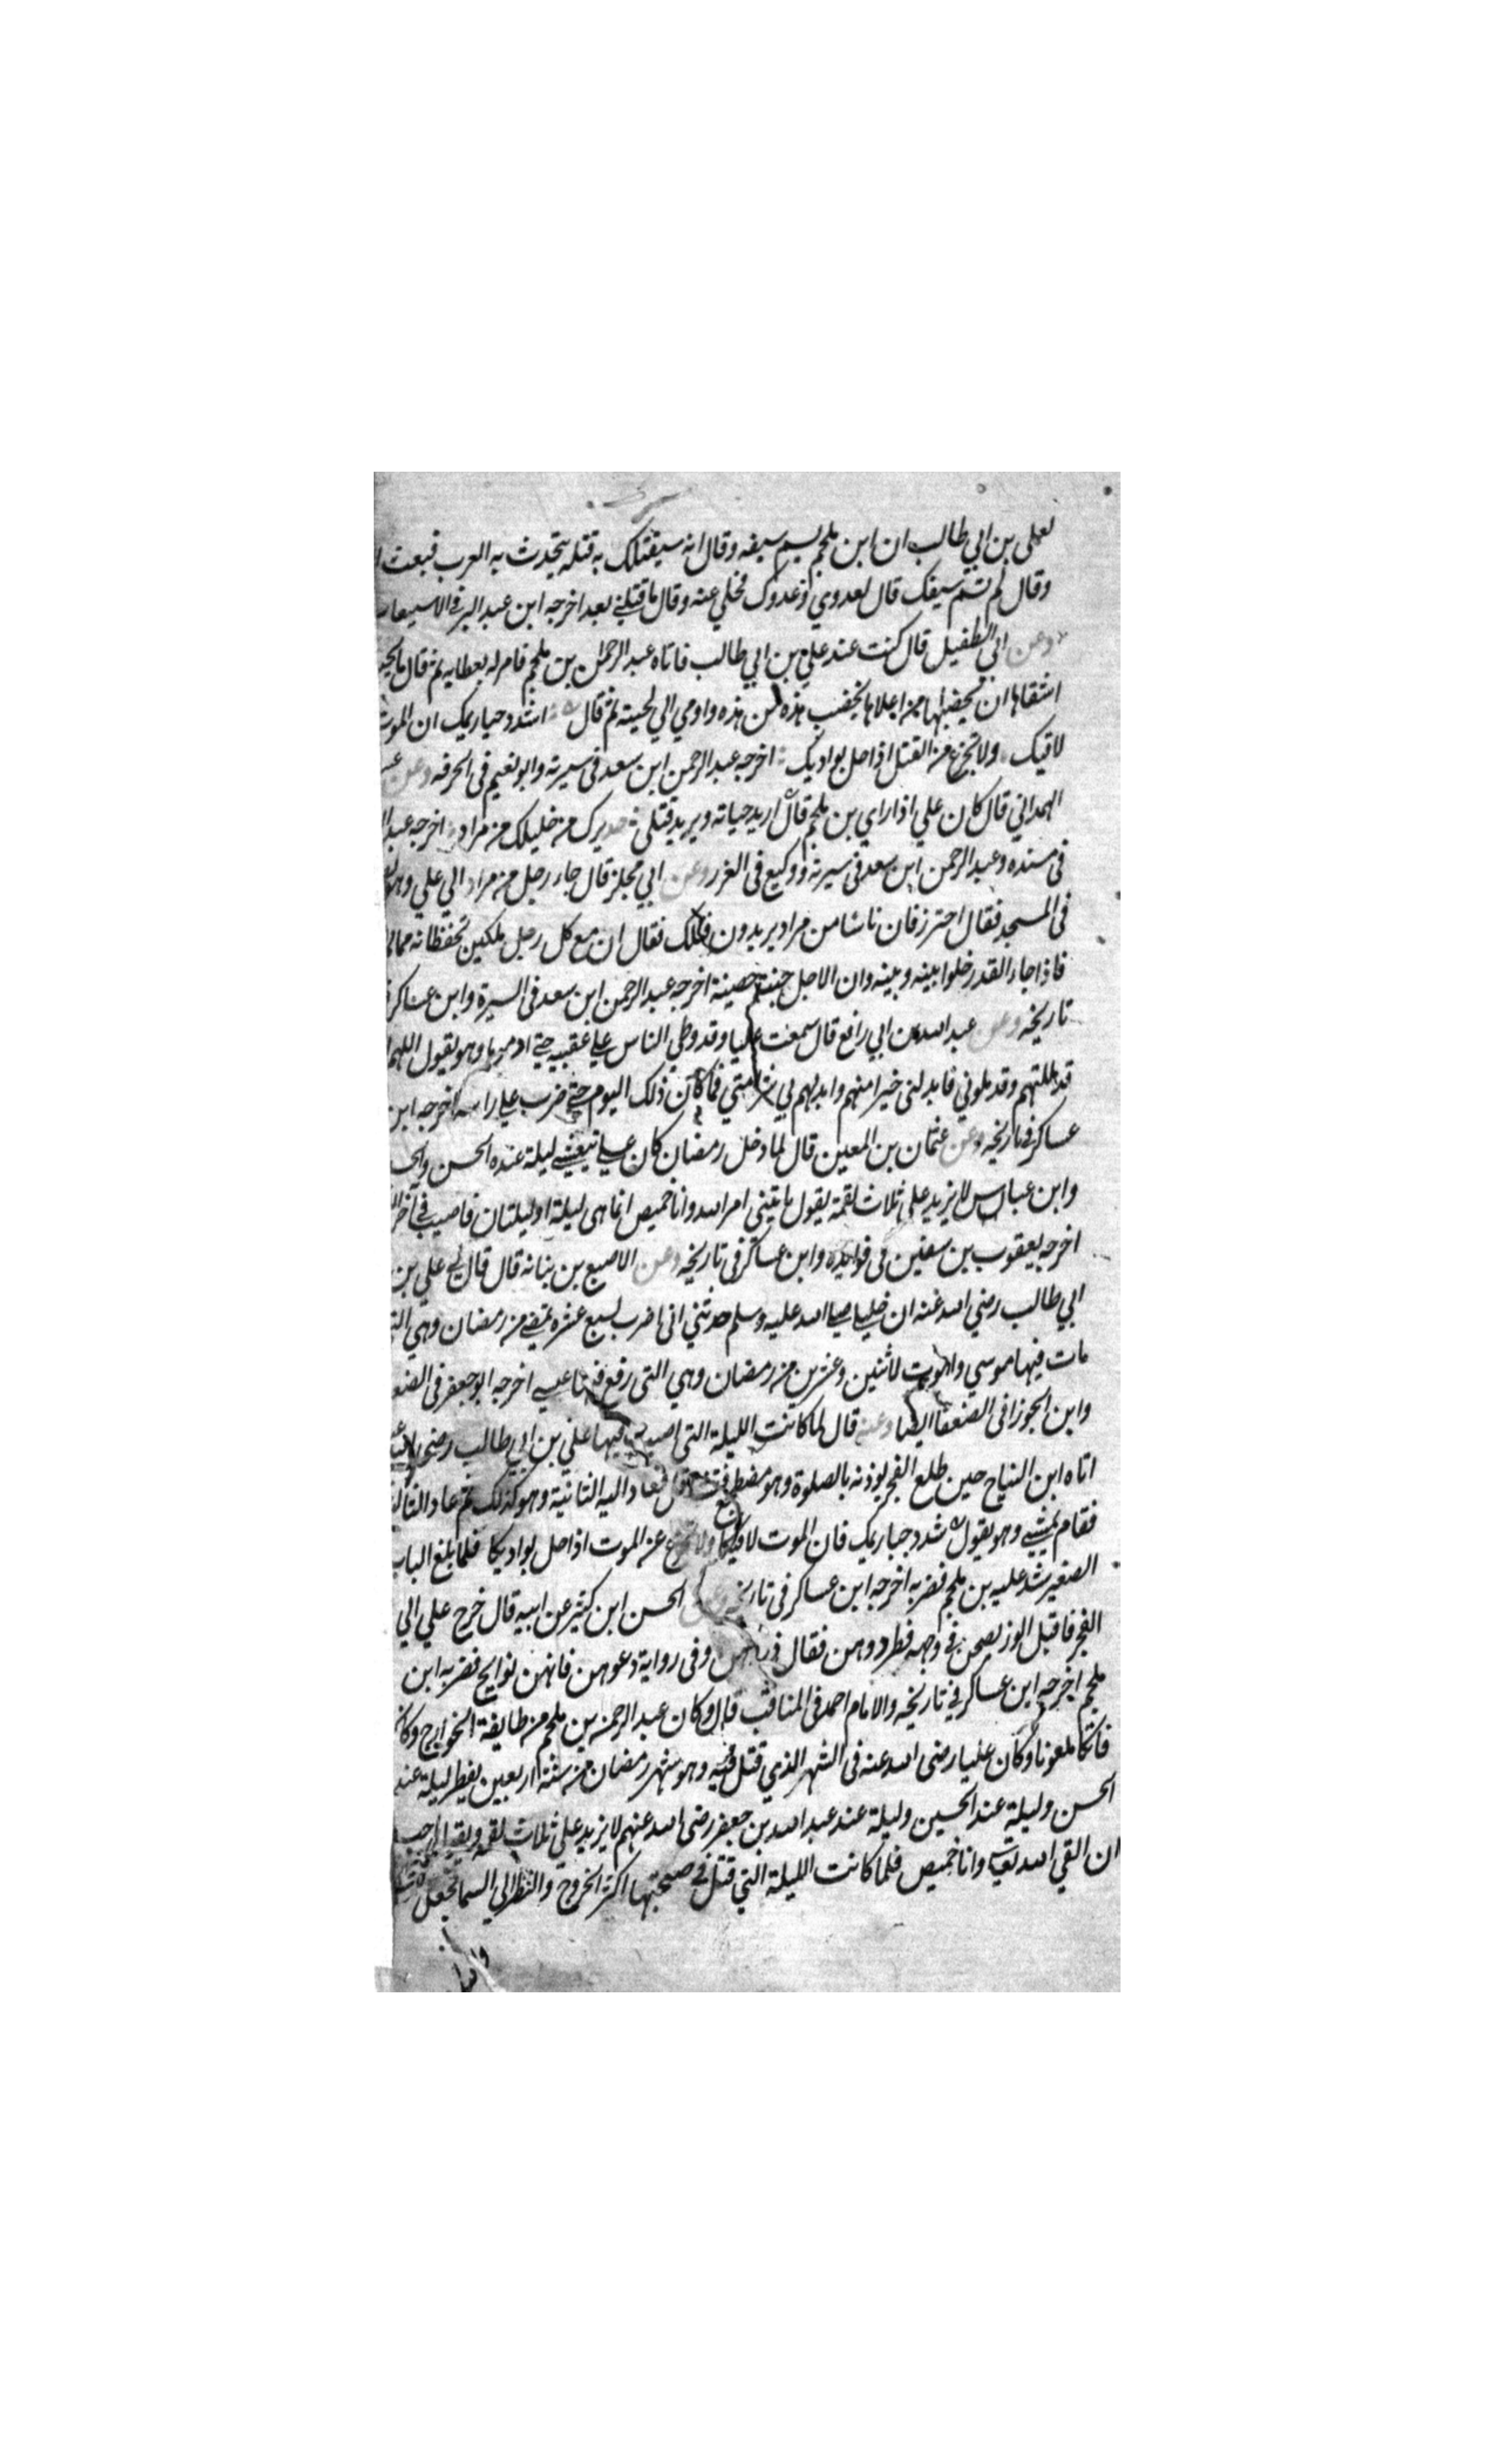 لعلى بن ابي طالب ان ابن ملجم يسم سيفه وقال انه سيقتلك به قتله يتحدث به العرب فبعث
وقال لم تسم سيفك قال لعدوي وعدوك فخلي عنه وقال ما قتلني بعد اخرجه ابن عبد البر في الاسيعاب
وعن ابي الطفيل قال كنت عند علي بن ابي طالب فاتاه عبد الرحمان بن ملجم فامر له بعطايه ثم قال ما يحبس
اشقاها ان يخضبها من اعلاها يخضب هذه من هذه واومي الي لحيته ثم قال اشدد حيازيمك ان الموت
لاقيك ولا تجزع من القتل اذا حل بواديك اخرجه عبد الرحمن ابن سعد في سيرته وابو نعيم في الحرفه وعن
الهمداني قال كان علي اذا راي بن ملجم قال اريد حياته ويريد قتلي عديرك من خليلك من مراد اخرجه عبد
في مسنده وعبد الرحمن ابن سعد في سيرته ووكيع في الغرر وعن ابي مجلز قال جاء رجل من مراد الي علي وهو
في المسجد فقال احترز فان ناسا من مراد يريدون قتلك فقال ان مع كل رجل ملكين تحفظانه مما
فاذا جاء القدر خلوا بينه وبينه وان الاجل جنة حصينة اخرجه عبد الرحمن ابن سعد في السيرة وابن عساكر
تاريخه وعن عبد الله بن ابي رافع قال سمعت عليا وقد وطي الناس علي عقبيه حتي ادموها وهو يقول اللهم
قد مللتهم وقد ملوني فابدلني خيرا منهم وابدلهم بي شرا مني فما كان ذلك اليوم حتي ضرب علي راسه اخرجه ابن
عساكر في تاريخه وعن عثمان بن المعين قال لما دخل رمضان كان علي يتعشي ليلة عنده الحسن
وابن عباس لا يزيد على ثلاث لقمة يقول ياتيني امر الله وانا خميص انما هي ليلة او ليلتان فاصيب في اخر
اخرجه يعقوب بن سفين في فوايده وابن عساكر في تاريخه وعن الاصبع بن بنانه قال قال لي علي بن
ابي طالب رضي الله عنه ان خليلي صلي الله عليه وسلم حدثني اني اضرب لسبع عشره تمضي من رمضان وهي
مات فيها موسي واموت لاثنين وعشرين من رمضان وهي التي رفع فيها عيسي اخرجه ابو جعفر في
وابن الجوزا في الضعفا ايضا وعنه قال لما كانت الليلة التي اصيب فيها علي بن ابي طالب رضي الله
اتاه ابن النياح حين طلع الفجر يوذنه بالصلوة وهو مضطجع فعاد اليه الثانية وهو كذلك ثم عاد الثالثة
فقام يمشي وهو يقول شدد حيازيمك فان الموت لاقيكا ولا تجزع عن الموت اذا حل بواديكا فلما بلغ الباب
الصغير شد عليه بن ملجم فضربه اخرجه ابن عساكر في تاريخه وعن الحسن ابن كثير عن ابيه قال خرج علي الي
الفجر فاقبل الوز يصحن في وجهه فطردوهن فقال وفي رواية دعوهن فانهن نوايح فضربه ابن
ملجم اخرجه ابن عساكر في تاريخه والامام احمد في المناقب قال وكان عبد الرحمن بن ملجم من طايفة الخوارج وكان
فاتكا ملعونا وكان عليا رضي الله عنه في الشهر الذي قتل فيه وهو شهر رمضان من سنة اربعين يفطر ليلة عند
الحسن وليلة عند الحسين وليلة عند عبد الله بن جعفر رضي الله عنهم لا يزيد على ثلاث لقم ويقول احب
ان القي الله تعالي وانا خميص فلما كانت الليلة التي قتل في صبحتها اكثر الخروج والنظر الي السما فجعل